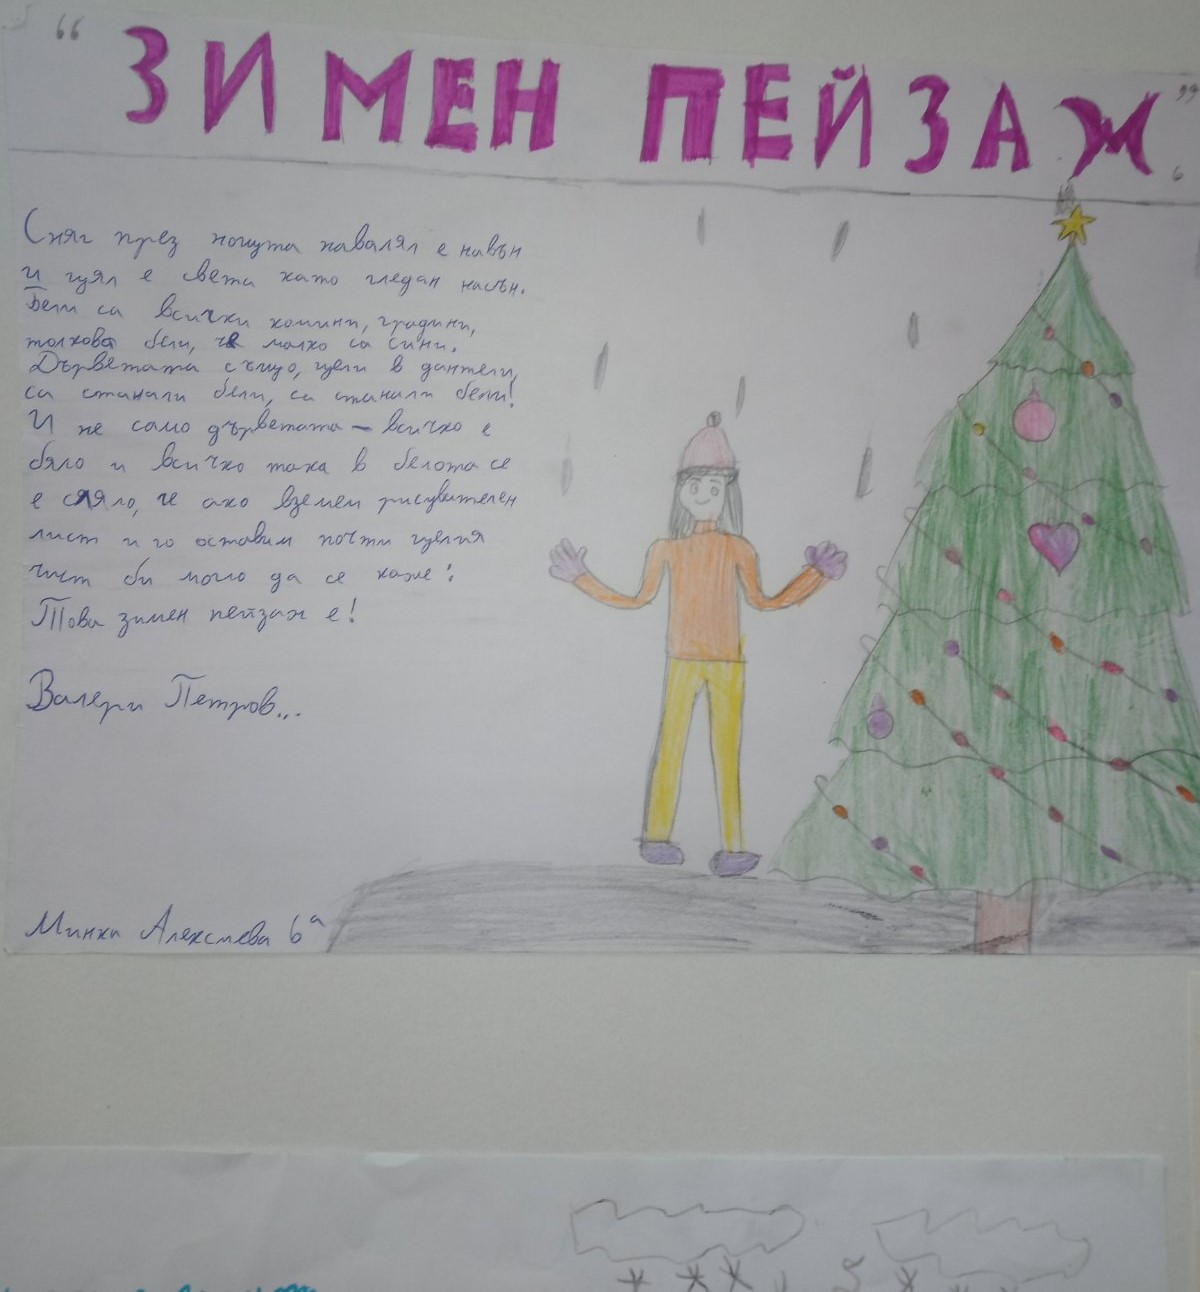 "ЗИМЕН ПЕЙЗАЖ"
Сняг през нощта навалял е навън
и цял е света като гледан насън.
Бели са всички комини, градини,
толкова бели, че малко са сини.
Дърветата също, цели в дантели,
са станали бели, са станали бели!
И не само дърветата – всичко е
бяло и всичко така в белота се
е сляло, че ако вземем рисувателен
лист и го оставим почти целия
чист би могло да се каже:
Това зимен пейзаж е!
Валери Петров...
Минка Алексиева 6а